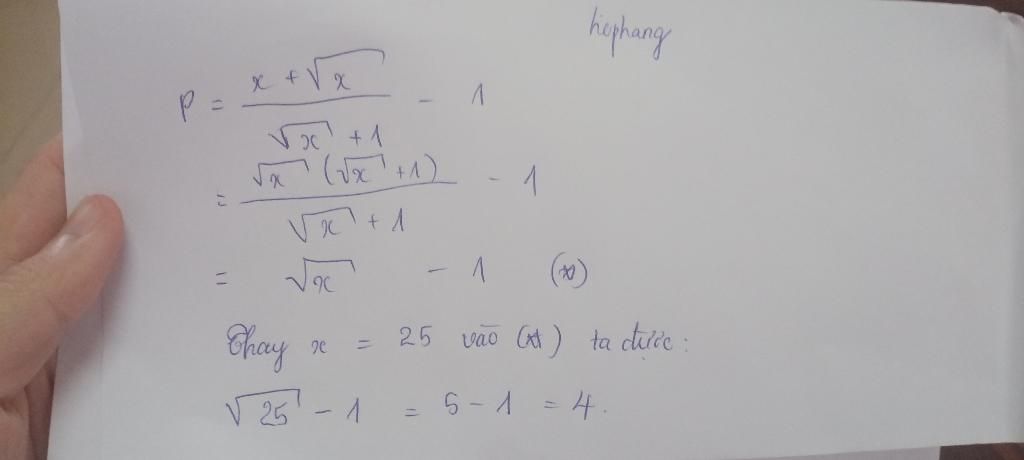 hiephang
P = \frac{x + \sqrt{x}}{\sqrt{x} + 1} - 1
= \frac{\sqrt{x} (\sqrt{x} + 1)}{\sqrt{x} + 1} - 1
= \sqrt{x} - 1 (*)
Thay x = 25 vào (*) ta được :
\sqrt{25} - 1 = 5 - 1 = 4.